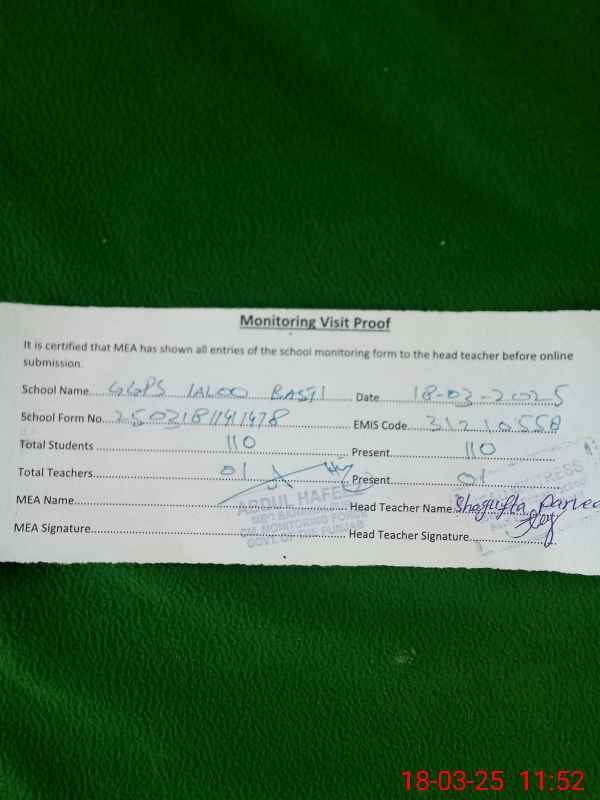 Monitoring Visit Proof
It is certified that MEA has shown all entries of the school monitoring form to the head teacher before online
submission.
School Name.... GGPS LALOO BASTI .... Date .... 18-03-2025
School Form No. ... EMIS Code.... 31210558
Total Students .... 110 .... Present.... 110
Total Teachers.... 01 .... Present.... 01
MEA Name.... ABDUL HAFEEZ .... Head Teacher Name. Shagufta Parveen
CM. MONITORING FORCE
GOVT. OF THE PUNJAB
MEA Signature.... Head Teacher Signature....
18-03-25 11:52